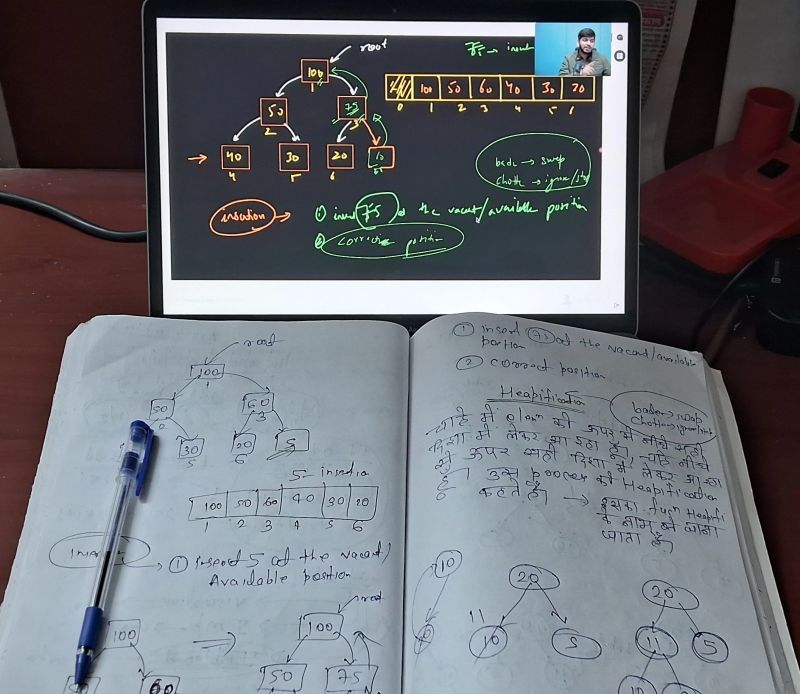 root
75 → insert
100
1
50
2
75
3
40
4
30
5
20
6
100 50 60 40 30 20
0 1 2 3 4 5 6
bada → swap
chota → ignore/stop
insertion → ① insert 75 at the vacant/available position
② correct position
root
100
1
50
2
60
3
30
5
20
6
5
100 50 60 40 30 20
1 2 3 4 5 6
① insert 5 at the vacant/
Available position
100
60
root
100
50 75
① insert 75 at the vacant/available
② correct position
Heapification
bada → swap
चाहे मैं element को ऊपर से नीचे सही
दिशा में लेकर आ रहा हूँ, चाहे नीचे
से ऊपर सही दिशा में लेकर आ रहा
हूँ। उस process को Heapification
कहते हैं। → इसका
के नाम से जाना
जाता है।
10
20
11
10 5
20
11 5
10